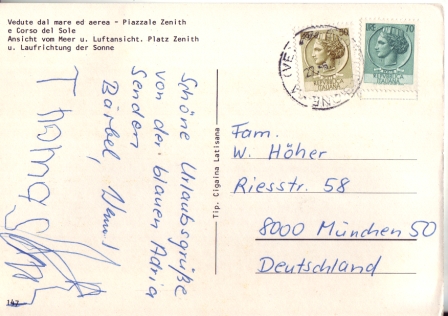 Vedute dal mare ed aerea - Piazzale Zenith
e Corso del Sole
Ansicht vom Meer u. Luftansicht. Platz Zenith
u. Laufrichtung der Sonne
Schöne Urlaubsgrüße
von der blauen Adria
Senden
Bärbel,
Thomas
147
Tip. Cigaina Latisana
50
LIRE 70
Fam.
W. Höher
Riesstr. 58
8000 München 50
Deutschland